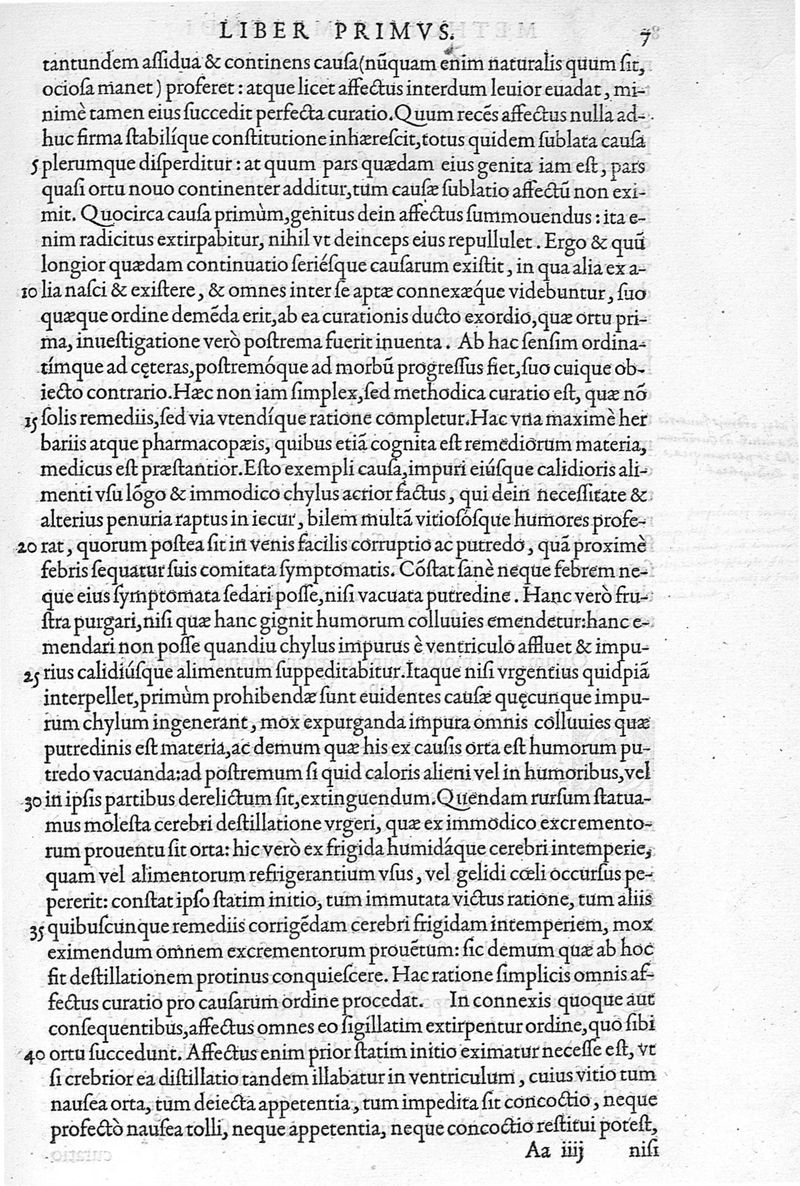 LIBER PRIMVS. 7
tantundem aſſidua & continens cauſa(nũquam enim naturalis quum ſit,
ocioſa manet) proferet: atque licet affectus interdum leuior euadat, mi-
nimè tamen eius ſuccedit perfecta curatio.Quum recẽs affectus nulla ad-
huc firma ſtabilíque conſtitutione inhæreſcit,totus quidem ſublata cauſa
5 plerumque diſperditur: at quum pars quædam eius genita iam eſt, pars
quaſi ortu nouo continenter additur,tum cauſæ ſublatio affectũ non exi-
mit. Quocirca cauſa primùm,genitus dein affectus ſummouendus: ita e-
nim radicitus extirpabitur, nihil vt deinceps eius repullulet. Ergo & quũ
longior quædam continuatio ſeriéſque cauſarum exiſtit, in qua alia ex a-
10 lia naſci & exiſtere, & omnes inter ſe aptæ connexæque videbuntur, ſuo
quæque ordine demẽda erit,ab ea curationis ducto exordio,quæ ortu pri-
ma, inueſtigatione verò poſtrema fuerit inuenta. Ab hac ſenſim ordina-
tímque ad cęteras,poſtremóque ad morbũ progreſſus fiet,ſuo cuique ob-
iecto contrario.Hæc non iam ſimplex,ſed methodica curatio eſt, quæ nõ
15 ſolis remediis,ſed via vtendíque ratione completur.Hac vna maximè her
bariis atque pharmacopæis, quibus etiã cognita eſt remediorum materia,
medicus eſt præſtantior.Eſto exempli cauſa,impuri eiúſque calidioris ali-
menti vſu lõgo & immodico chylus acrior factus, qui dein neceſſitate &
alterius penuria raptus in iecur, bilem multã vitioſóſque humores profe-
20 rat, quorum poſtea ſit in venis facilis corruptio ac putredo, quã proximè
febris ſequatur ſuis comitata ſymptomatis. Cõſtat ſanè neque febrem ne-
que eius ſymptomata ſedari poſſe,niſi vacuata putredine. Hanc verò fru-
ſtra purgari,niſi quæ hanc gignit humorum colluuies emendetur:hanc e-
mendari non poſſe quandiu chylus impurus è ventriculo affluet & impu-
25 rius calidiúſque alimentum ſuppeditabitur.Itaque niſi vrgentius quidpiã
interpellet,primùm prohibendæ ſunt euidentes cauſæ quęcunque impu-
rum chylum ingenerant, mox expurganda impura omnis colluuies quæ
putredinis eſt materia,ac demum quæ his ex cauſis orta eſt humorum pu-
tredo vacuanda:ad poſtremum ſi quid caloris alieni vel in humoribus,vel
30 in ipſis partibus derelictum ſit,extinguendum.Quendam rurſum ſtatua-
mus moleſta cerebri deſtillatione vrgeri, quæ ex immodico excremento-
rum prouentu ſit orta: hic verò ex frigida humidáque cerebri intemperie,
quam vel alimentorum refrigerantium vſus, vel gelidi cœli occurſus pe-
pererit: conſtat ipſo ſtatim initio, tum immutata victus ratione, tum aliis
35 quibuſcunque remediis corrigẽdam cerebri frigidam intemperiem, mox
eximendum omnem excrementorum prouẽtum: ſic demum quæ ab hoc
fit deſtillationem protinus conquieſcere. Hac ratione ſimplicis omnis af-
fectus curatio pro cauſarum ordine procedat. In connexis quoque aut
conſequentibus,affectus omnes eo ſigillatim extirpentur ordine,quo ſibi
40 ortu ſuccedunt. Affectus enim prior ſtatim initio eximatur neceſſe eſt, vt
ſi crebrior ea diſtillatio tandem illabatur in ventriculum, cuius vitio tum
nauſea orta, tum deiecta appetentia, tum impedita ſit concoctio, neque
profectò nauſea tolli, neque appetentia, neque concoctio reſtitui poteſt,
Aa iiij niſi